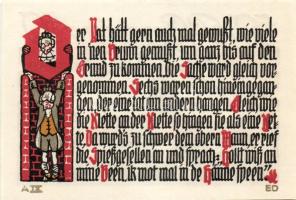 Der Rat hätt gern auch mal gewußt, wie viele
in den Brunn gewußt, um ganz bis auf den
Grund zu kommen. Die Sache ward gleich vor
genommen. Sechs waren schon hineingegan
gen, der eine tat am andern hangen. Gleich wie
die Klette an der Klette so hingen sie als eine Ket
te. Da wurd's zu schwer dem öbern Mann, er rief
die Spießgesellen an und sprach: "Holt wiß an
mine Been, ik mot mal in de Hänne speen."
A IX
ED